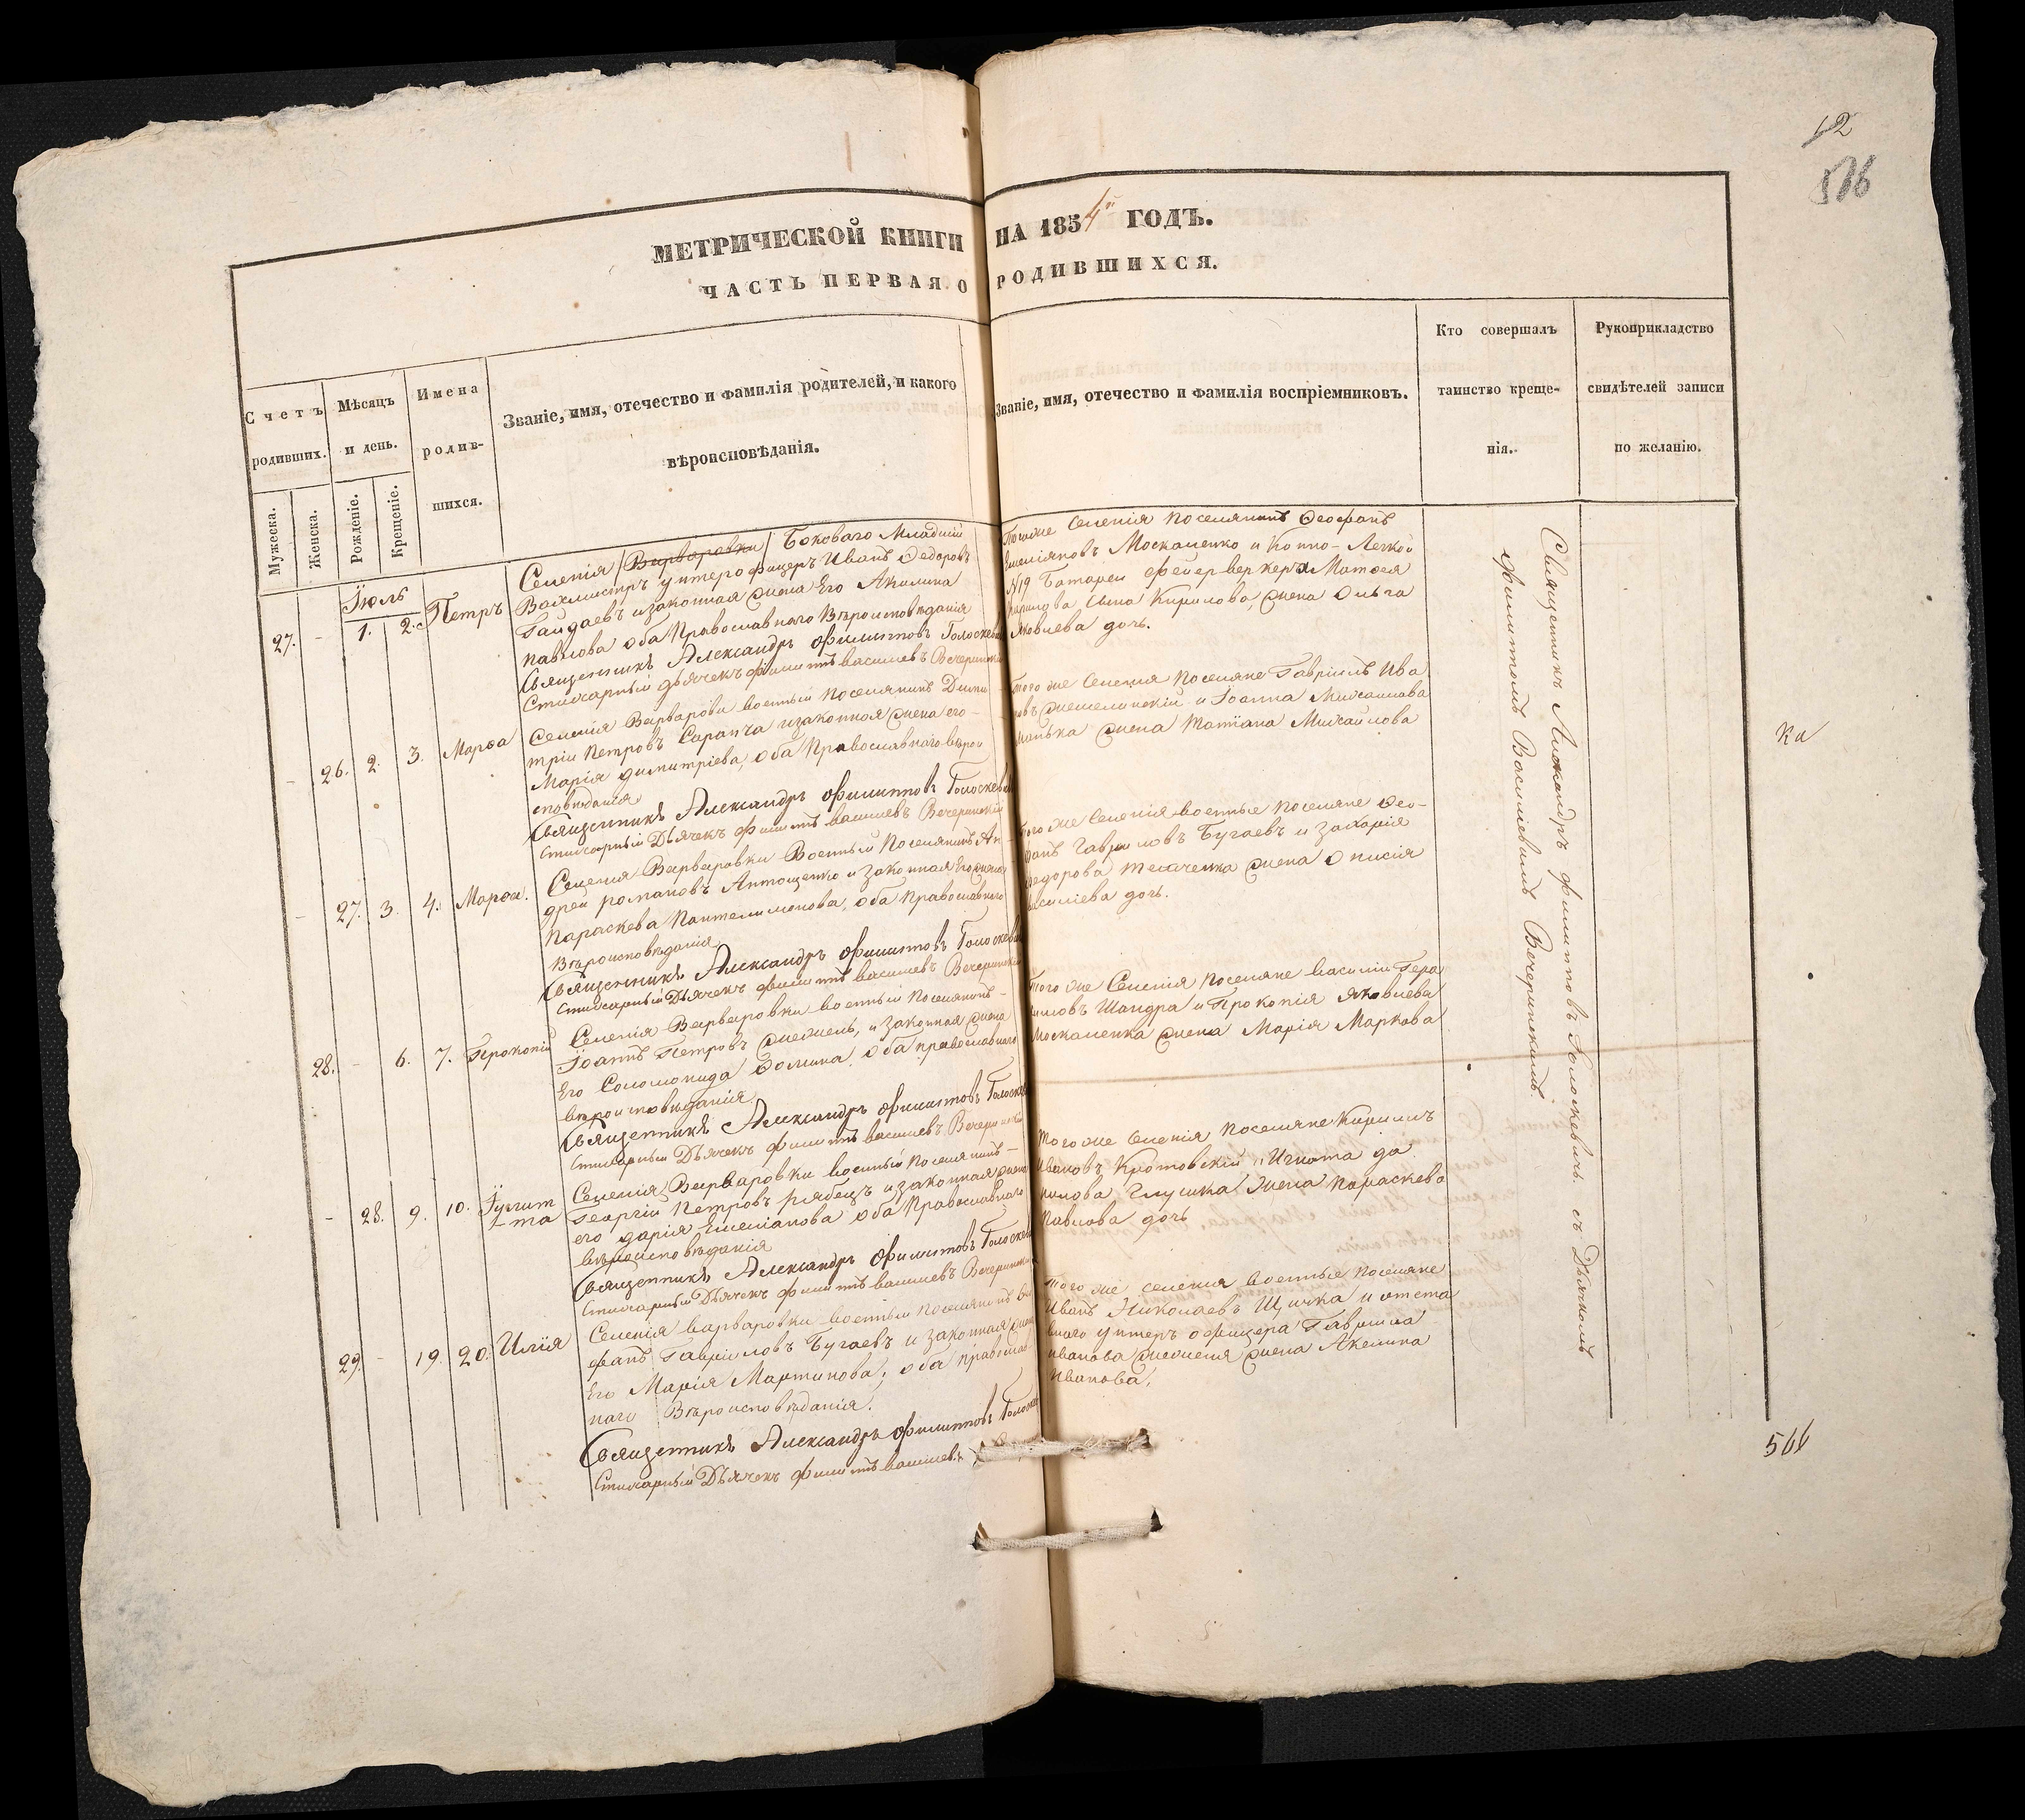 12
516
МЕТРИЧЕСКОЙ КНИГИ НА 1854й ГОДЪ.
ЧАСТЬ ПЕРВАЯ О РОДИВШИХСЯ.
Счетъ
родивших.
Мужеска.
Женска.
Мѣсяцъ
и день.
Рожденіе.
Крещеніе.
Имена
родив-
шихся.
Званіе, имя, отечество и фамилія родителей, и какого
вѣроисповѣданія.
Званіе, имя, отечество и фамилія воспріемниковъ.
Кто совершалъ
таинство креще-
нія.
Рукоприкладство
свидѣтелей записи
по желанію.
Іюль
27. - 1. 2. Петръ
Селенія Варваровки Боковаго Младшій
Вахмистръ унтерофицеръ Иванъ Федоровъ
Гайдаевъ и законная жена Его Акилина
Павлова оба Православнаго Вѣроисповѣданія
Священникъ Александръ Филиптовъ Голоскевич
Стихарный дьячекъ Филиппъ васильевъ Вечеринскій
Тогоже Селенія поселянинъ Феофанъ
Емеліяновъ Москаленко и Конно-Легкой
№19 Батареи фейерверкера Матфея
Кирилова сына Кирилова, жена Ольга
Яковлева дочь.
- 26. 2. 3. Марфа
Селенія Варваровки военный поселянинъ Дими-
трій Петровъ Саранча и законная жена его
Марія димитріева, оба Православнаго вѣрои
сповѣданія
Священникъ Александръ Филиптовъ Голоскевич
Стихарный Дьячекъ Филиппъ васильевъ Вечеринскій
Того же Селенія поселяне Гавріилъ Ива
новъ Жежелинскій и Іоанна Михайлова
жена Татіана Михайлова
- 27. 3. 4. Марфа.
Селенія Варваровки Военный Поселянинъ Ан-
дрей романовъ Антощенко и законная Его жена
Параскева Пантелимонова, оба Православнаго
Вѣроисповѣданія
Священникъ Александръ Филиптовъ Голоскевич
Стихарный Дьячекъ Филиппъ васильевъ Вечеринскій
Того же Селенія военные поселяне Фео-
фанъ Гавриловъ Бугаевъ и Захарія
федорова Ткаченка жена Онисія
василіева дочь.
28. - 6. 7. Прокопій
Селенія Варваровки военный поселянинъ
Іоаннъ Петровъ Жежель, и законная жена
Его Соломонида Фомина, оба православнаго
вѣроисповѣданія
Священникъ Александръ Филиптовъ Голоскевич
Стихарный Дьячекъ Филиппъ васильевъ Вечеринскій
Того же Селенія поселяне василій Гера
симовъ Шандра и Прокопія Яковлева
Москаленка жена Марія Маркова
- 28. 9. 10. Іулит
та
Селенія Варваровки военный поселянинъ
Георгій Петровъ рябецъ и законная жена
его дарія Емеліанова оба Православнаго
вѣроисповѣданія
Священникъ Александръ Филиптовъ Голоскевич
Стихарный Дьячекъ Филиппъ васильевъ Вечеринскій
Того же Селенія поселяне Кириллъ
Ивановъ Кротовскій и Игната да
нилова Глушка жена Параскева
Павлова дочь
29. - 19. 20. Илія
Селенія варваровки военный поселянинъ Фео
фанъ Гавріиловъ Бугаевъ и законная жена
Его Марія Мартинова; оба православ
наго Вѣроисповѣданія.
Священникъ Александръ Филиптовъ Голоскевич
Стихарный Дьячекъ Филиппъ васильевъ
Того же селенія военные поселяне
Иванъ Николаевъ Щичка и отста
внаго унтеръ офицера Гавріила
иванова Жежеля жена Акелина
Иванова.
Священникъ Александръ Филипповъ Голоскевичъ съ Дьячкомъ
Филиппомъ Василіевимъ Вечеринскимъ.
Ка
566